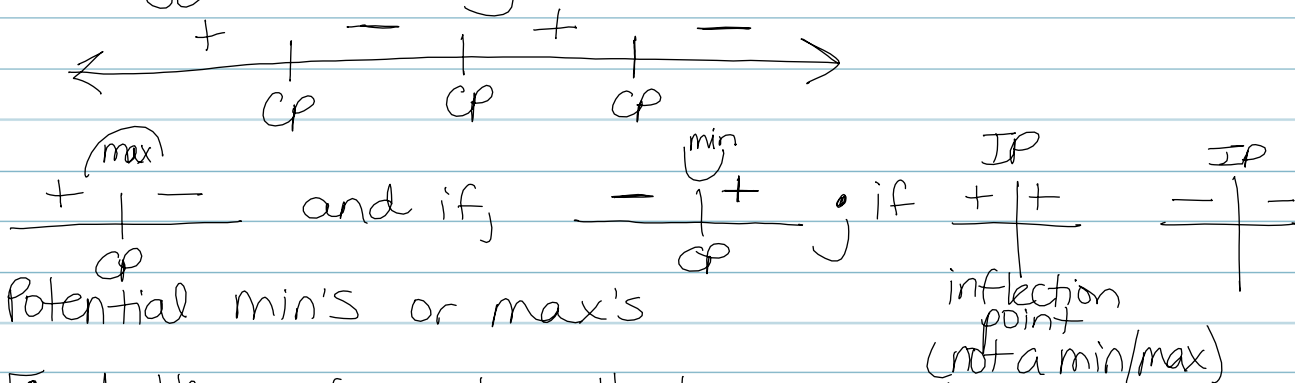 + − + −
CP CP CP
max min IP IP
+ − and if, − + ; if + + − −
CP CP
Potential min's or max's
inflection
point
(not a min/max)